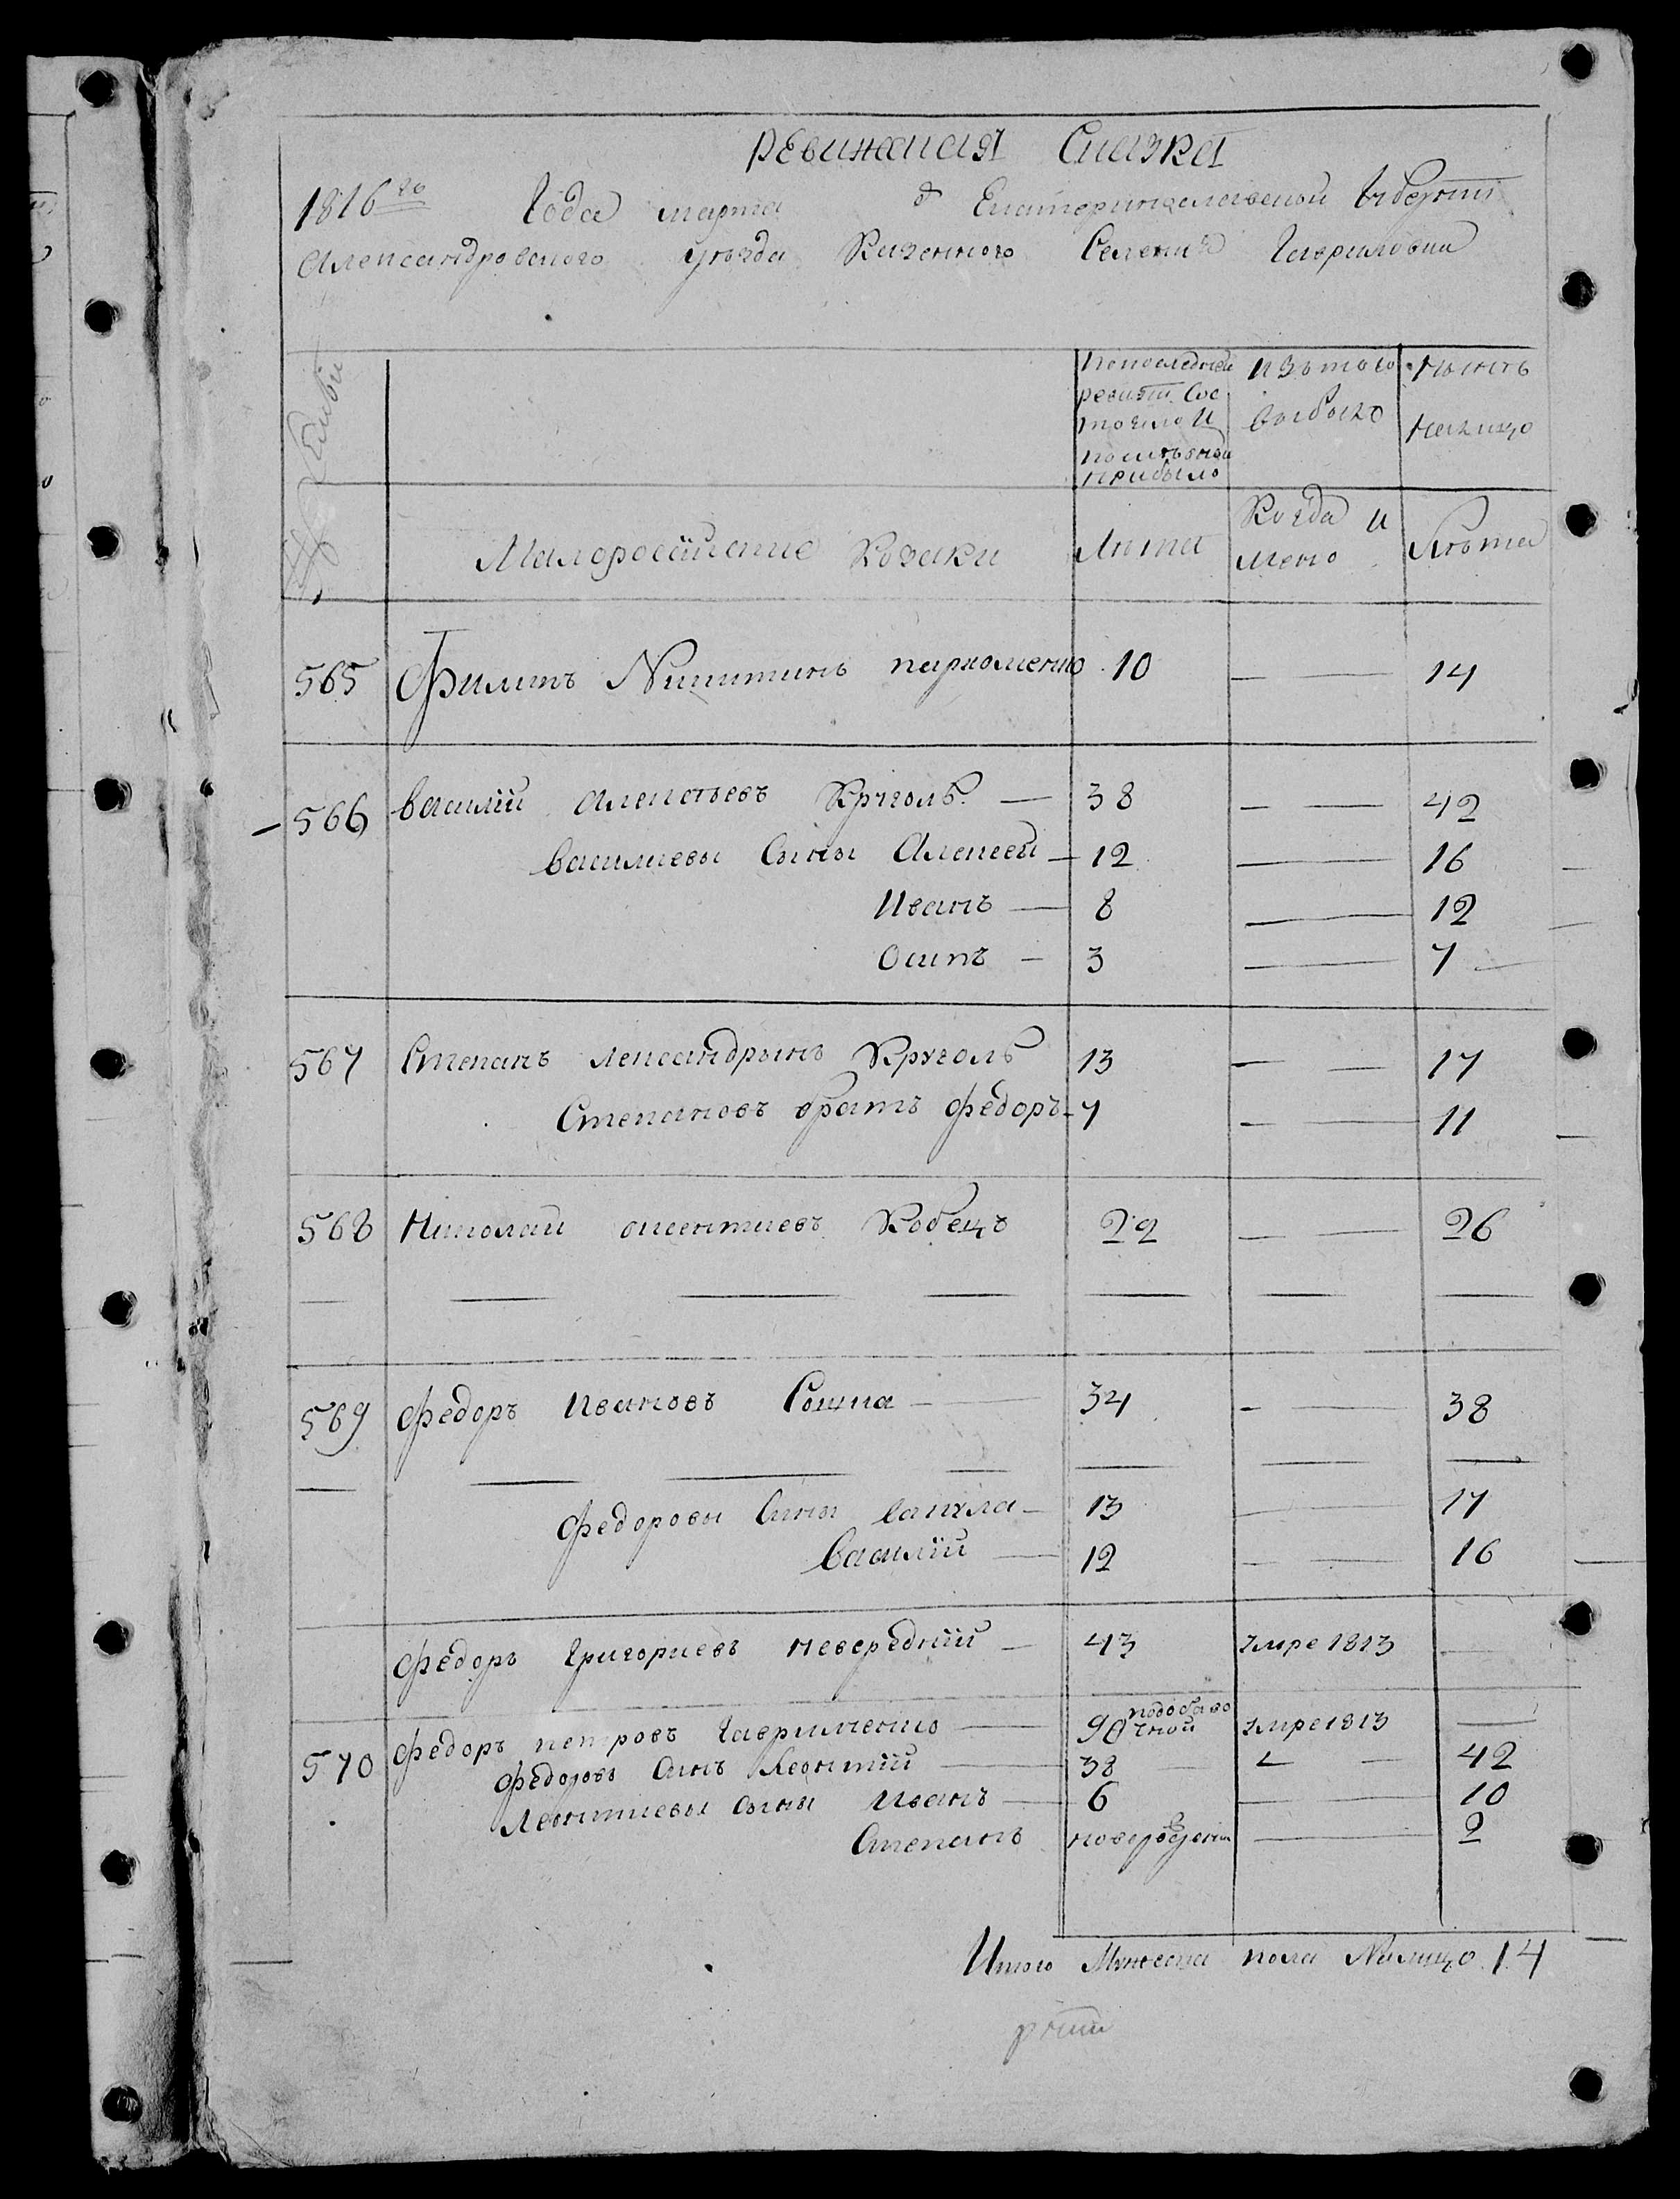 Ревижская Сказка
1816го Года марта д Екатеринославской Губернии
Александровского уезда Казенного Селения Гавриловки
Семьи
Попоследней ревизiи Состояло и послѣ оной прибыло
изъ того выбыло
Нынѣ налицо
Малоросiйские Козаки
Лѣта
Когда и мено
Лѣта
565 Филипъ Никитинъ пархоменко 10 — — 14
566 василiй алексѣевъ Круголь — 38 — — 42
василиевы Сыны Алексей — 12 — 16
Иванъ — 8 — 12
Осипъ — 3 — 7
567 Степанъ лександрынъ Круголь 13 — — 17
Степановъ братъ федоръ - 7 — — 11
568 Николай Кобецъ 22 — — 26
569 федоръ Ивановъ Сошка — 34 - — 38
федоровы Сыны вакула — 13 — 17
василiй — 12 — 16
федоръ Григориевъ невередкiй — 43 змре 1813 —
570 федоръ петровъ Гавриленко — 90 подобавочной змре 1813 —
федоровъ Сынъ Леонтiй — 38 — 42
Леонтиевы Сыны Иванъ — 6 — 10
Степанъ новорожден — 2
Итого Мужеска пола Налицо 14